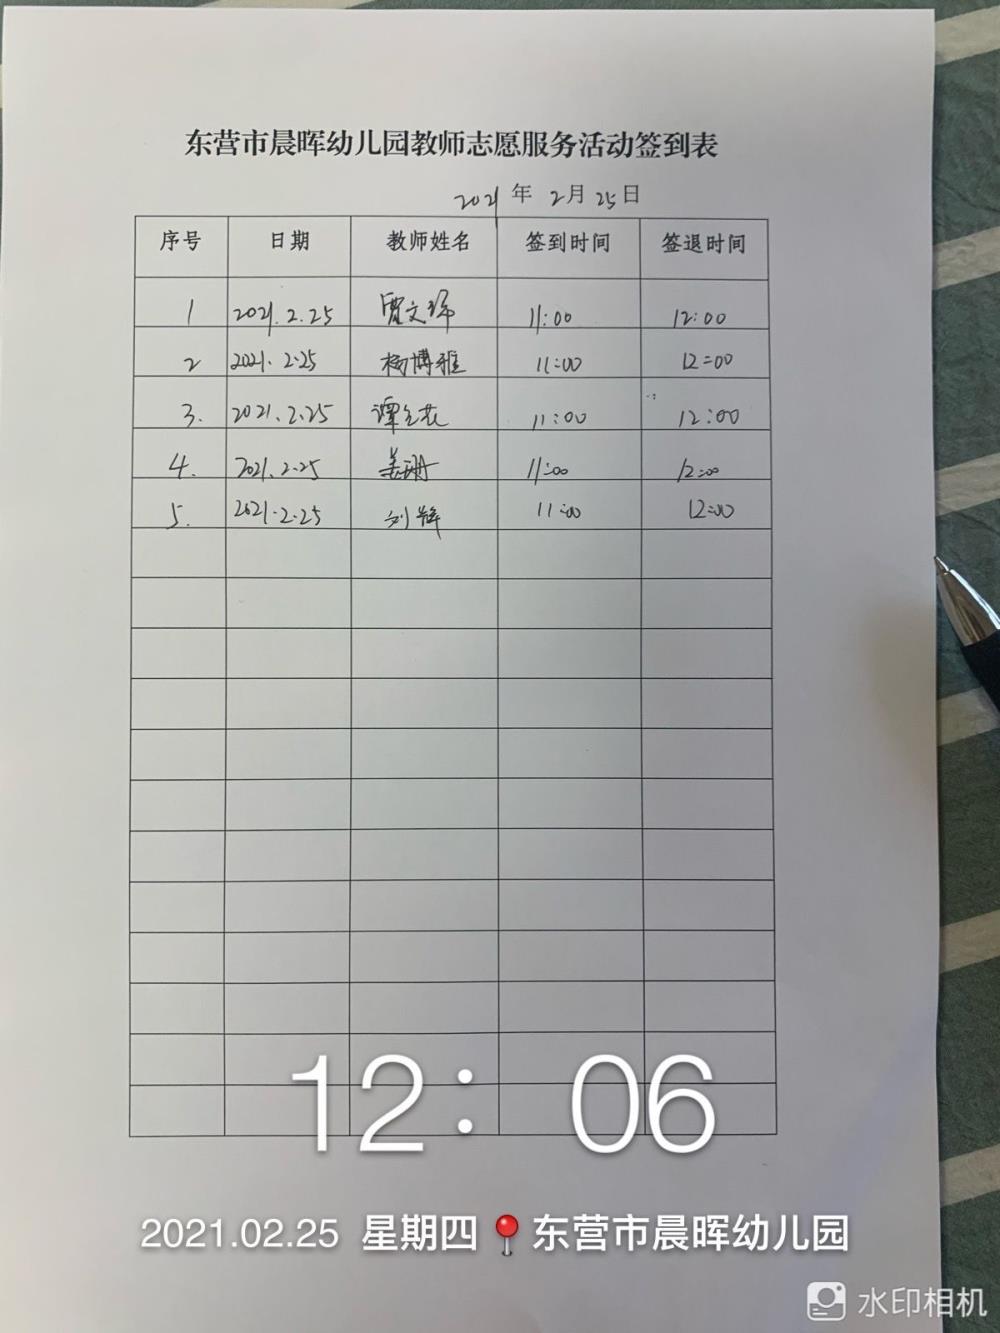 东营市晨晖幼儿园教师志愿服务活动签到表
2021 年 2月 25日
序号 日期 教师姓名 签到时间 签退时间
1 2021.2.25 贾文 11:00 12:00
2 2021.2.25 杨博雅 11:00 12:00
3. 2021.2.25 谭 花 11:00 12:00
4. 2021.2.25 姜珊 11:00 12:00
5. 2021.2.25 刘辉 11:00 12:00
12: 06
2021.02.25 星期四 东营市晨晖幼儿园
水印相机